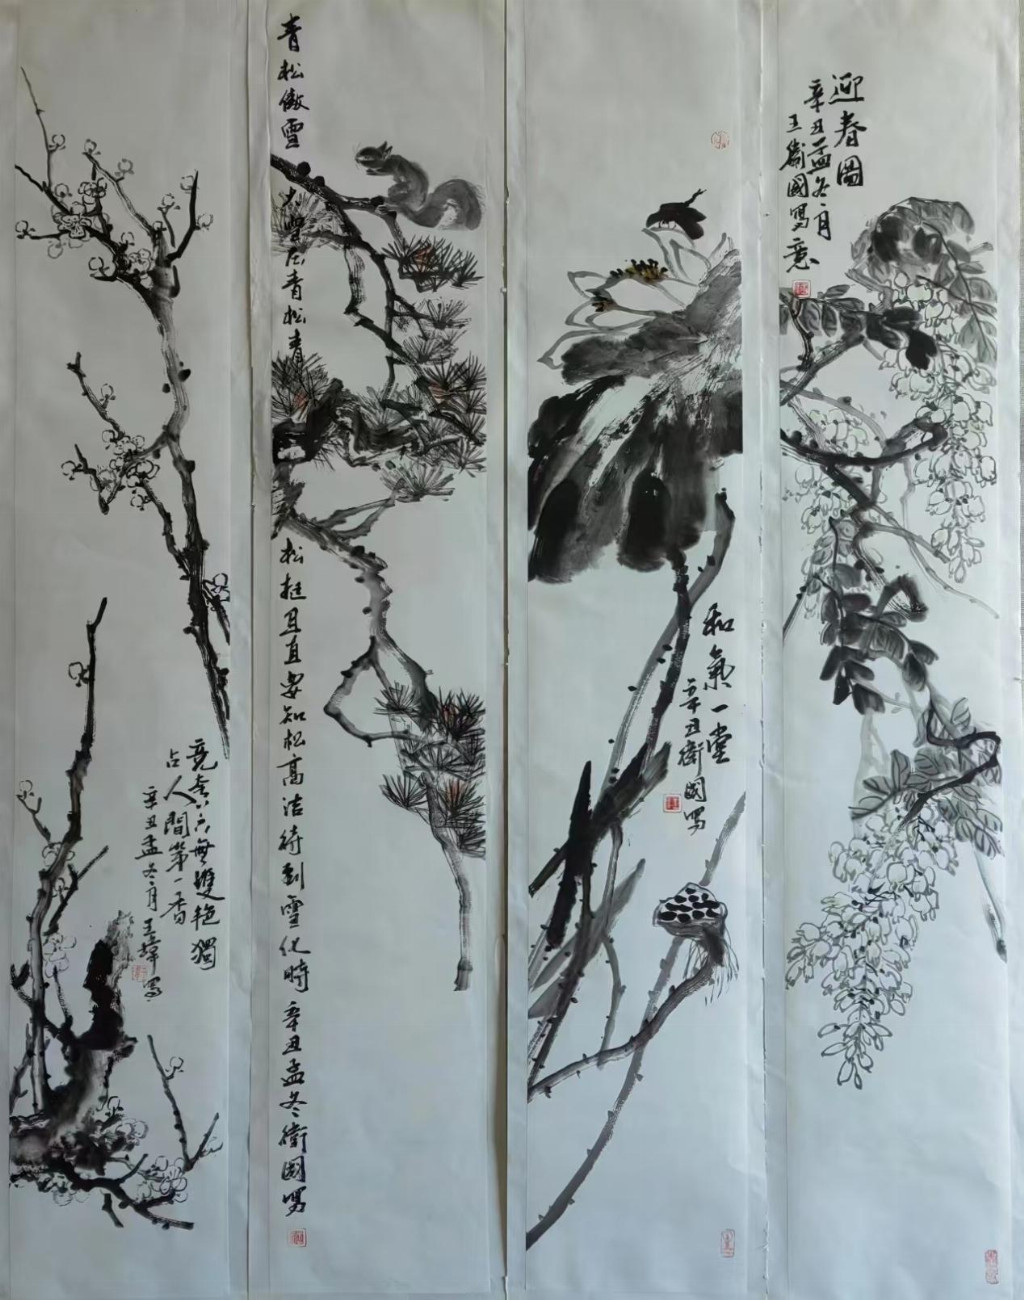 迎春圖
辛丑孟冬月
王衛國寫意
和氣一堂
辛丑衛國写
青松傲雪 大雪压青松青松挺且直要知松高洁待到雪化時 辛丑孟冬衛國写
竞夸天下無雙艳獨
占人間第一香
辛丑孟冬月王写